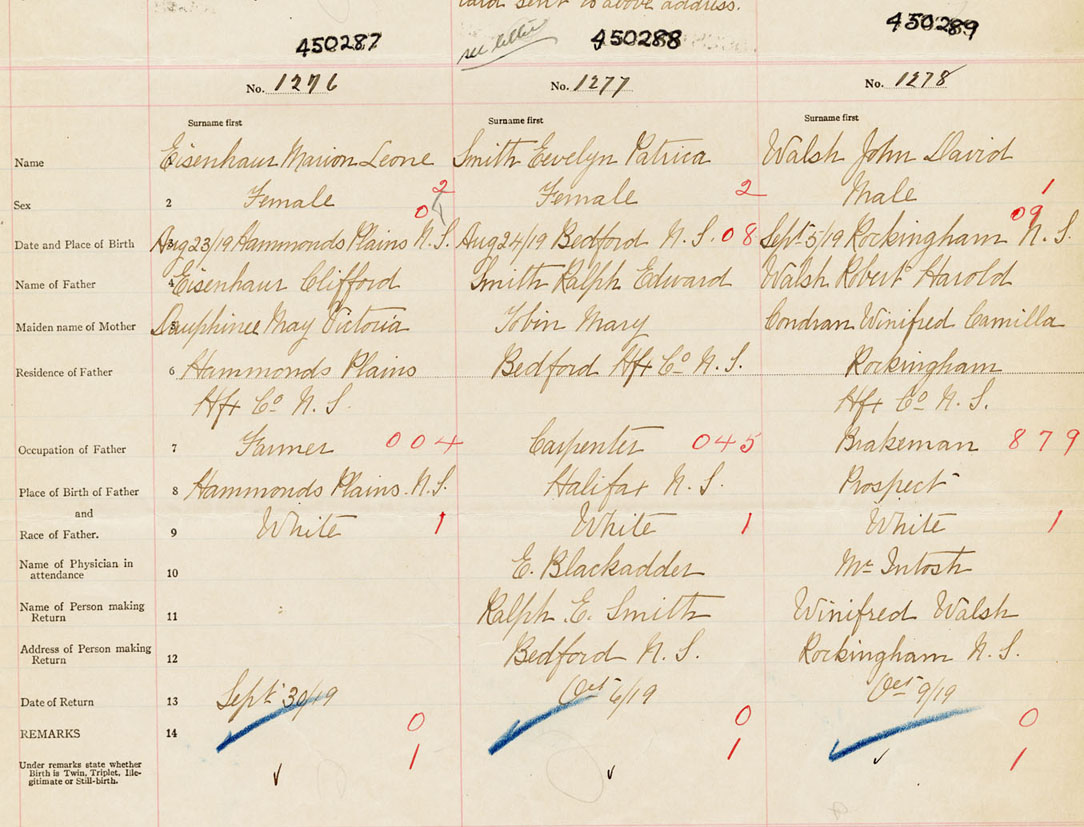 card sent to above address.
450287 see letter 450288 450289
No. 1276 No. 1277 No. 1278
Surname first Surname first Surname first
Name Eisenhaur Marion Leone Smith Eevelyn Patrica Walsh John David
Sex 2 Female 2 Female 2 Male 1
0 09
Date and Place of Birth 3 Aug 23/19 Hammonds Plains N.S. Aug 24/19 Bedford N.S. 08 Sept 5/19 Rockingham N.S.
Name of Father 4 Eisenhaur Clifford Smith Ralph Edward Walsh Robert Harold
Maiden name of Mother 5 Dauphinee May Victoria Tobin Mary Condran Winifred Camilla
Residence of Father 6 Hammonds Plains Bedford Hfx Co N.S. Rockingham
Hfx Co N.S. Hfx Co N.S.
Occupation of Father 7 Farmer 004 Carpenter 045 Brakeman 879
Place of Birth of Father 8 Hammonds Plains N.S. Halifax N.S. Prospect
and
Race of Father. 9 White 1 White 1 White 1
Name of Physician in
attendance 10 E. Blackadder Mc Intosh
Name of Person making
Return 11 Ralph E. Smith Winifred Walsh
Address of Person making
Return 12 Bedford N.S. Rockingham N.S.
Date of Return 13 Sept 30/19 Oct 6/19 Oct 9/19
REMARKS 14 0 0 0
Under remarks state whether 1 1 1
Birth is Twin, Triplet, Ille-
gitimate or Still-birth.